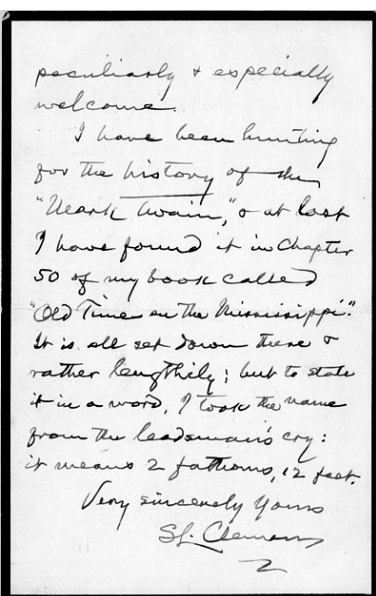 peculiarly & especially
welcome.
I have been hunting
for the history of the
"Mark Twain," & at last
I have found it in Chapter
50 of my book called
"Old Times on the Mississippi."
It is all set down there &
rather lengthily; but to state
it in a word, I took the name
from the leadsman's cry:
it means 2 fathoms, 12 feet.
Very sincerely Yours
SL. Clemens